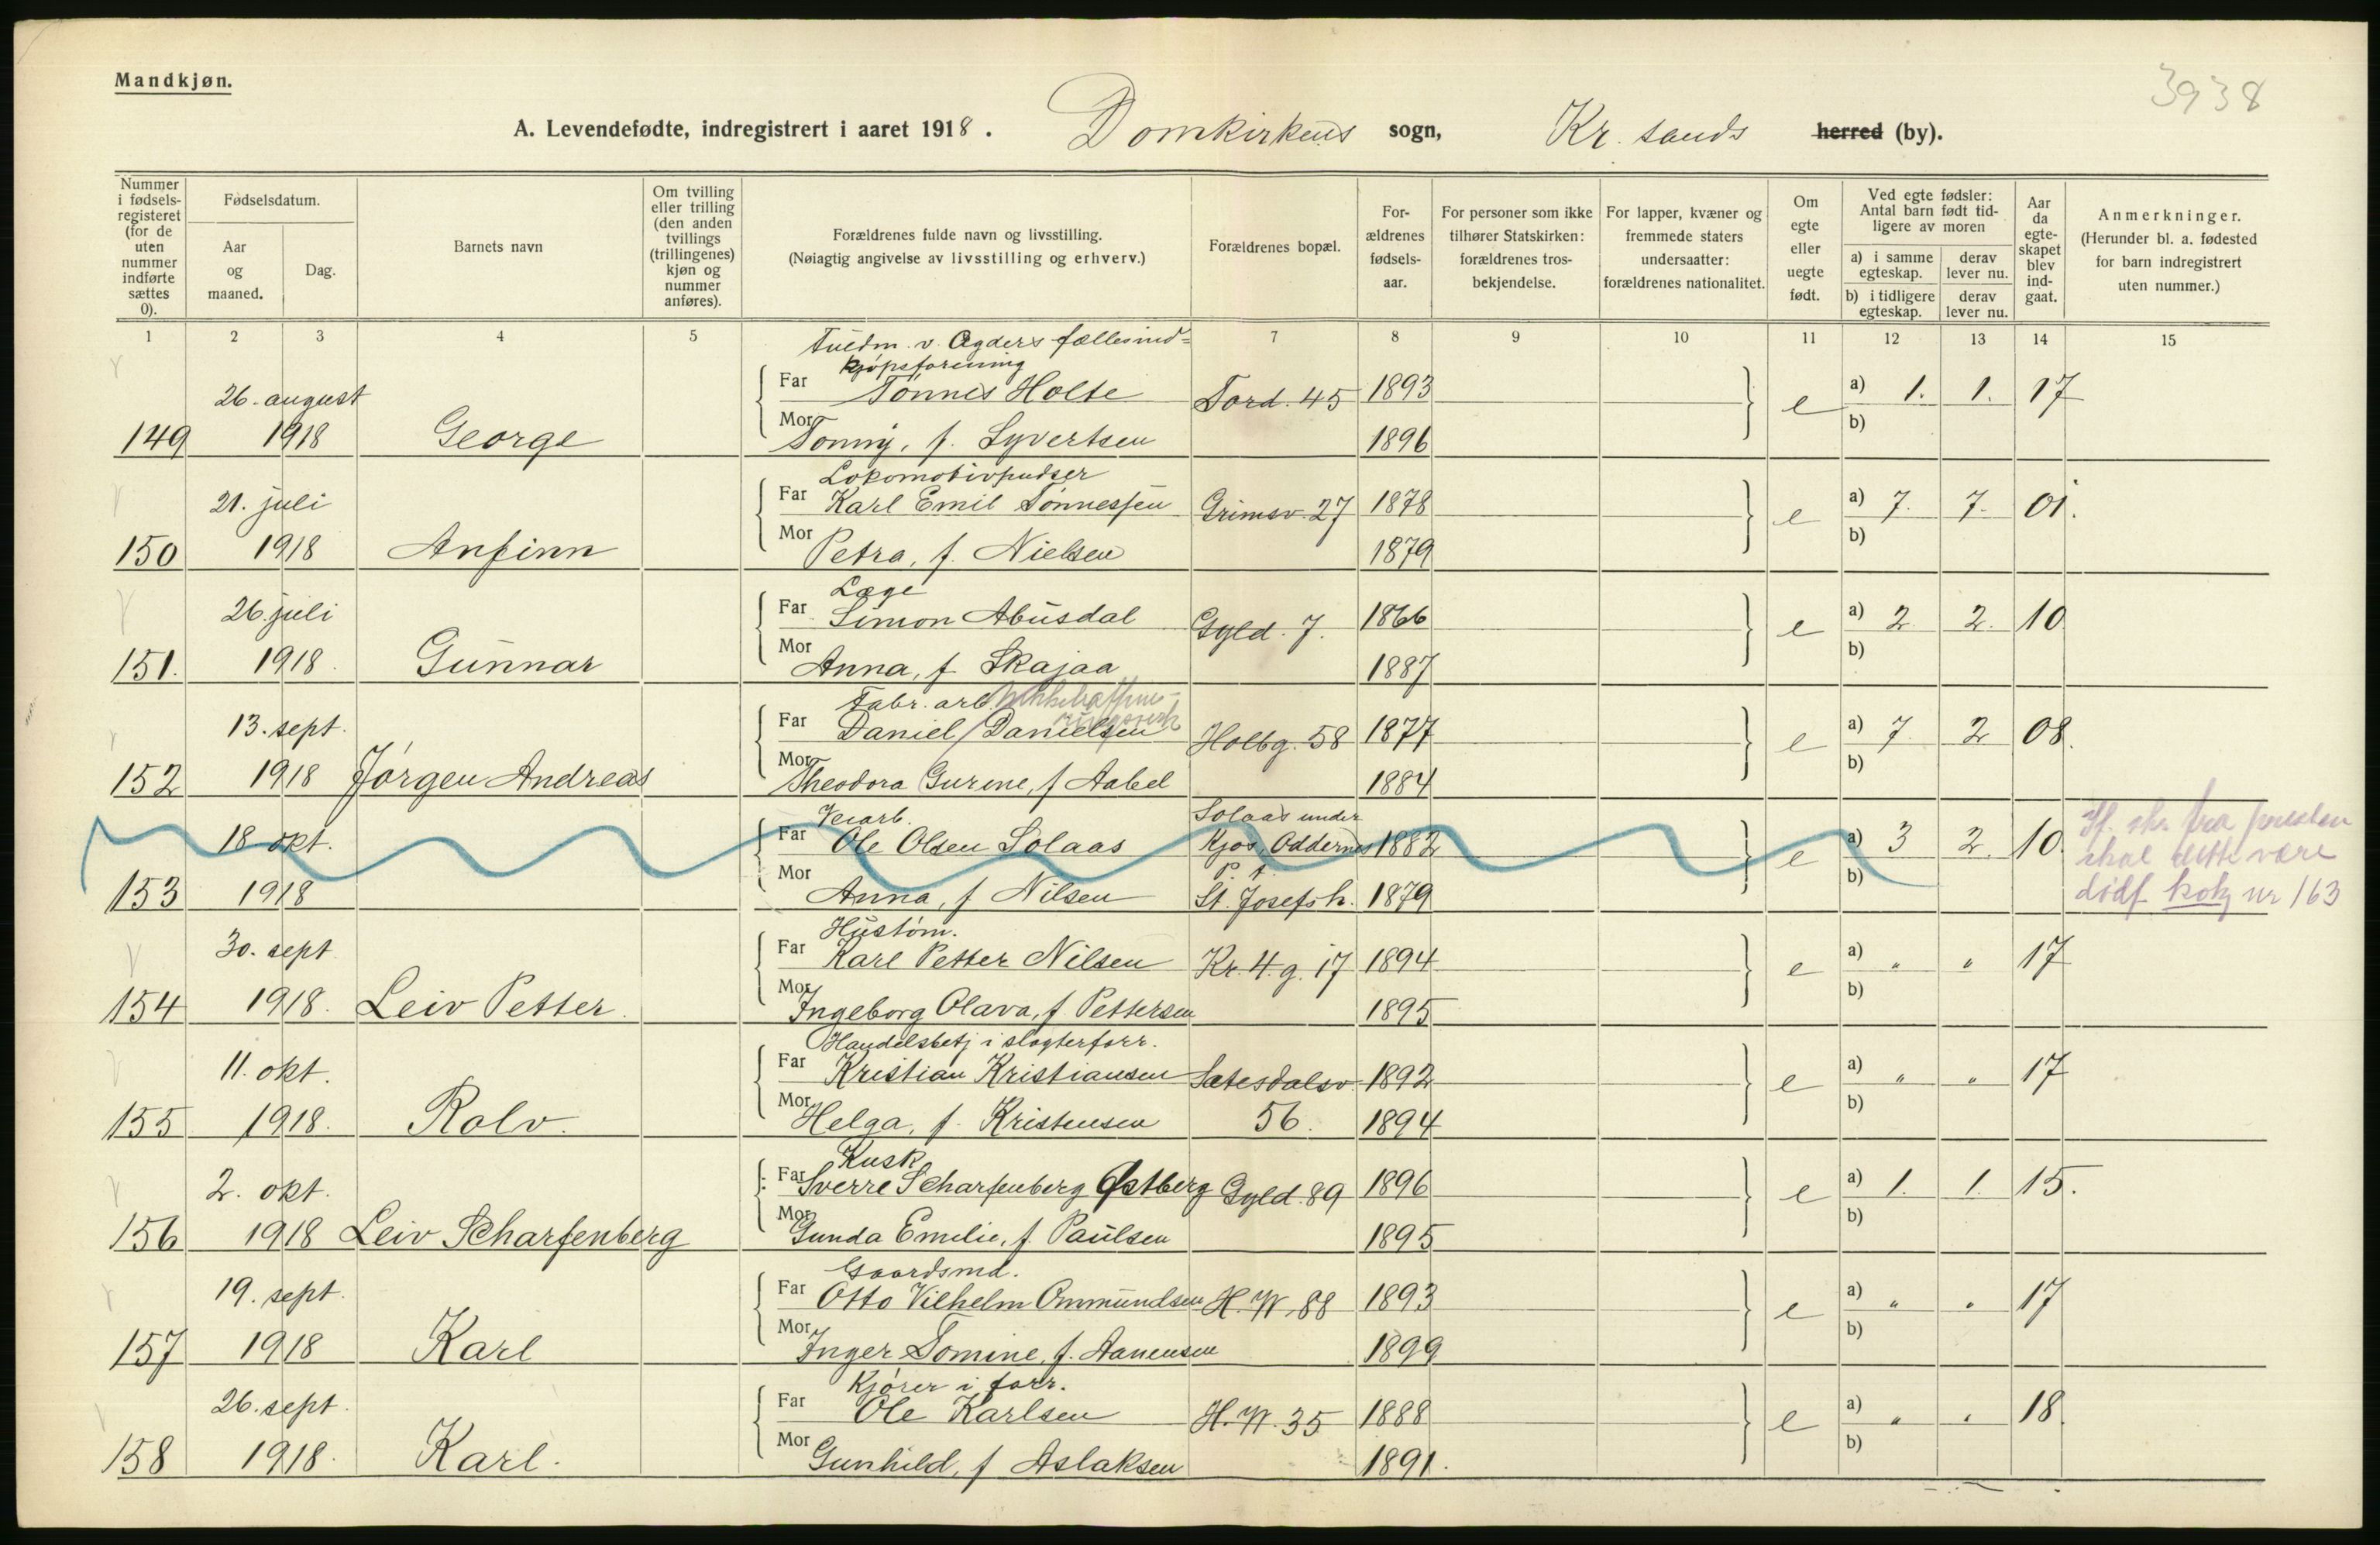 Mandkjøn.
3938
A. Levendefødte, indregistrert i aaret 1918. Domkirkens sogn, Kr. sands herred (by).
Nummer i fødselsregisteret (for de uten nummer indførte sættes 0).
Fødselsdatum.
Aar og maaned.
Dag.
Barnets navn
Om tvilling eller trilling (den anden tvillings (trillingenes) kjøn og nummer anføres).
Forældrenes fulde navn og livsstilling.
(Nøiagtig angivelse av livsstilling og erhverv.)
Forældrenes bopæl.
Forældrenes fødselsaar.
For personer som ikke tilhører Statskirken: forældrenes trosbekjendelse.
For lapper, kvæner og fremmede staters undersaatter: forældrenes nationalitet.
Om egte eller uegte født.
Ved egte fødsler: Antal barn født tidligere av moren
a) i samme egteskap. derav lever nu.
b) i tidligere egteskap. derav lever nu.
Aar da egteskapet blev indgaat.
Anmerkninger.
(Herunder bl. a. fødested for barn indregistrert uten nummer.)
1 2 3 4 5 7 8 9 10 11 12 13 14 15
v. Agders fællesind=
kjøpsforening
26. august Far Tønnes Holte Tord. 45 1893 e a) 1. 1. 17
149 1918 George Mor Tonny, f. Syvertsen 1896 b)
Lokomotivpudser
21. juli Far Karl Emil Tønnessen Grimsv. 27 1878 e a) 7. 7. 01.
150 1918 Anfinn Mor Petra, f. Nielsen 1879 b)
Læge
26. juli Far Simon Abusdal Gyld. 7. 1866 e a) 2 2. 10
151. 1918. Gunnar Mor Anna, f Skajaa 1887 b)
Fabr. arb.
13. sept. Far Daniel Danielsen Holbg. 58 1877 e a) 7 2 08.
152 1918 Jørgen Andreas Mor Theodora Gurine, f Aabel 1884 b)
Veiarb. Solaas under
18 okt. Far Ole Olsen Solaas Kjos, Oddernes 1882 e a) 3 2. 10. If. skr. fra presten
P. t. skal dette være
153 1918 Mor Anna, f Nilsen St. Josefsh. 1879 b) dødf. nr 163
Hustøm.
30. sept Far Karl Petter Nilsen Kr. 4. g. 17 1894 e a) " " 17
154 1918. Leiv Petter. Mor Ingeborg Olava, f. Pettersen 1895 b)
Handelsbetj i slagterforr.
11. okt. Far Kristian Kristiansen Sætesdalsv. 1892 e a) " " 17
155 1918. Rolv. Mor Helga, f. Kristensen 56. 1894 b)
Kusk
2. okt. Far Sverre Scharfenberg Østberg Gyld. 89 1896 e a) 1. 1. 15.
156 1918 Leiv Scharfenberg Mor Gunda Emilie, f Paulsen 1895 b)
Gaardsmd.
19. sept. Far Otto Vilhelm Ommundsen H. W. 88 1893 e a) " " 17
157 1918 Karl Mor Inger Tomine, f. Aanensen 1899 b)
Kjører i forr.
26. sept. Far Ole Karlsen H. W. 35 1888 e a) " " 18
158 1918. Karl. Mor Gunhild, f Aslaksen 1891. b)